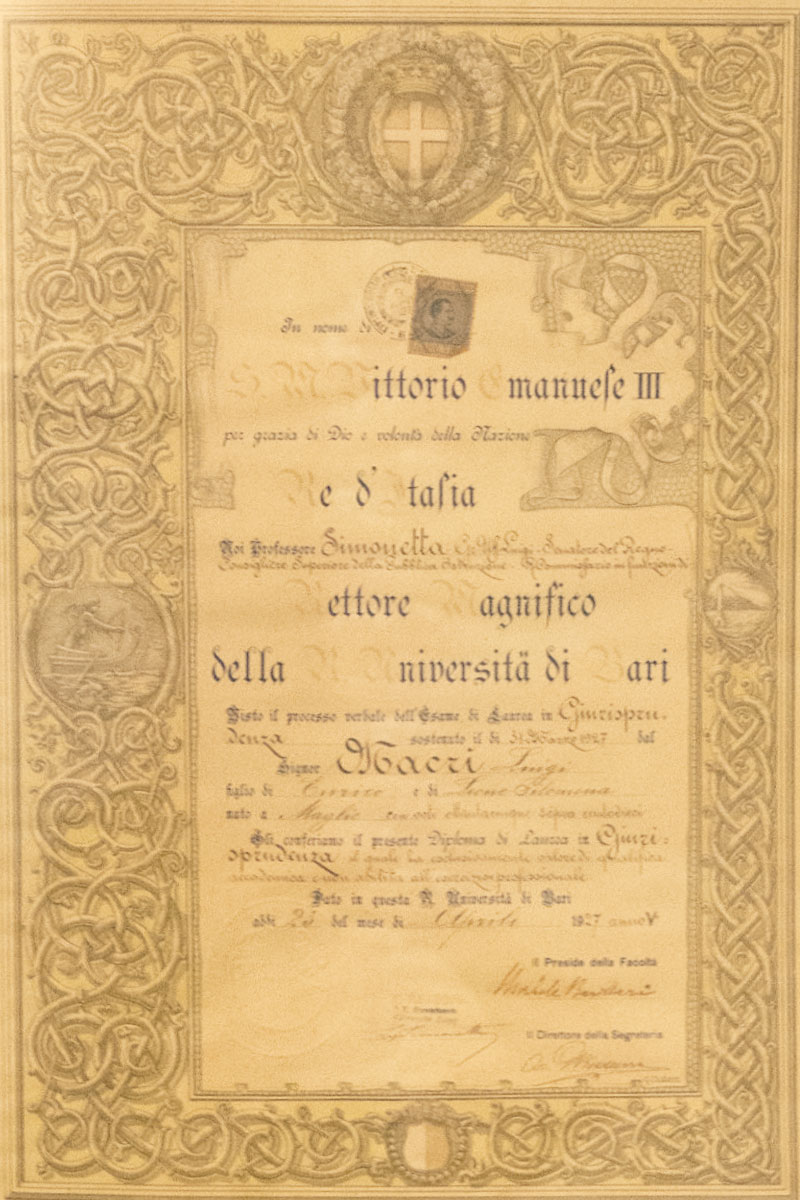 In nome di
S. M. Vittorio Emanuele III
per grazia di Dio e volontà della Nazione
Re d'Italia
Noi Professore Simonetta Luigi - Senatore del Regno -
Consigliere Superiore della Pubblica Istruzione - R. Commissario in funzioni di
Rettore Magnifico
della R. Università di Bari
Visto il processo verbale dell'Esame di Laurea in Giurispru-
denza sostenuto il dì 31 Marzo 1927 dal
Signor Macrì Luigi
figlio di e di Leone Filomena
nato a Maglie
Gli conferiamo il presente Diploma di Laurea in Giuri-
sprudenza il quale ha esclusivamente valore di qualifica
accademica e non abilita all'esercizio professionale
Dato in questa R. Università di Bari
addì 23 del mese di Aprile 1927 anno V
Il Preside della Facoltà
Il Direttore della Segreteria